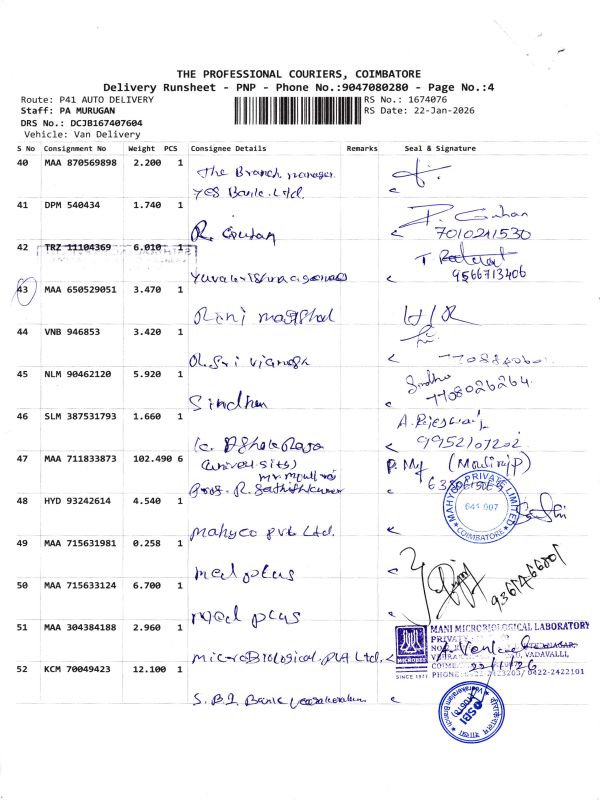 THE PROFESSIONAL COURIERS, COIMBATORE
Delivery Runsheet - PNP - Phone No.:9047080280 - Page No.:4
Route: P41 AUTO DELIVERY
RS No.: 1674076
Staff: PA MURUGAN
RS Date: 22-Jan-2026
DRS No.: DCJB167407604
Vehicle: Van Delivery
S No Consignment No Weight PCS Consignee Details Remarks Seal & Signature
40 MAA 870569898 2.200 1
The Branch manager
YES Bank. Ltd.
41 DPM 540434 1.740 1
R. Gowtam
P. Guhan
7010241530
42 TRZ 11104369 6.010 1
9566713406
43 MAA 650529051 3.470 1
Rani
H/R
44 VNB 946853 3.420 1
Sri
45 NLM 90462120 5.920 1
Sindhu
Sindhu
7708026264
46 SLM 387531793 1.660 1
A.
9952107202
47 MAA 711833873 102.490 6
(Mouliraj.P)
Prof. R. Sathishkumar
48 HYD 93242614 4.540 1
Mahyco Pvt Ltd.
MAHYCO PRIVATE LIMITED
641 007
COIMBATORE
49 MAA 715631981 0.258 1
med plus
50 MAA 715633124 6.700 1
med plus
51 MAA 304384188 2.960 1
MicroBiological. Pvt Ltd.
MANI MICROBIOLOGICAL LABORATORY
PRIVATE
VADAVALLI,
22/1/26
MICROBES
SINCE 1971
0422-2422101
52 KCM 70049423 12.100 1
S.B.I Bank
SBI